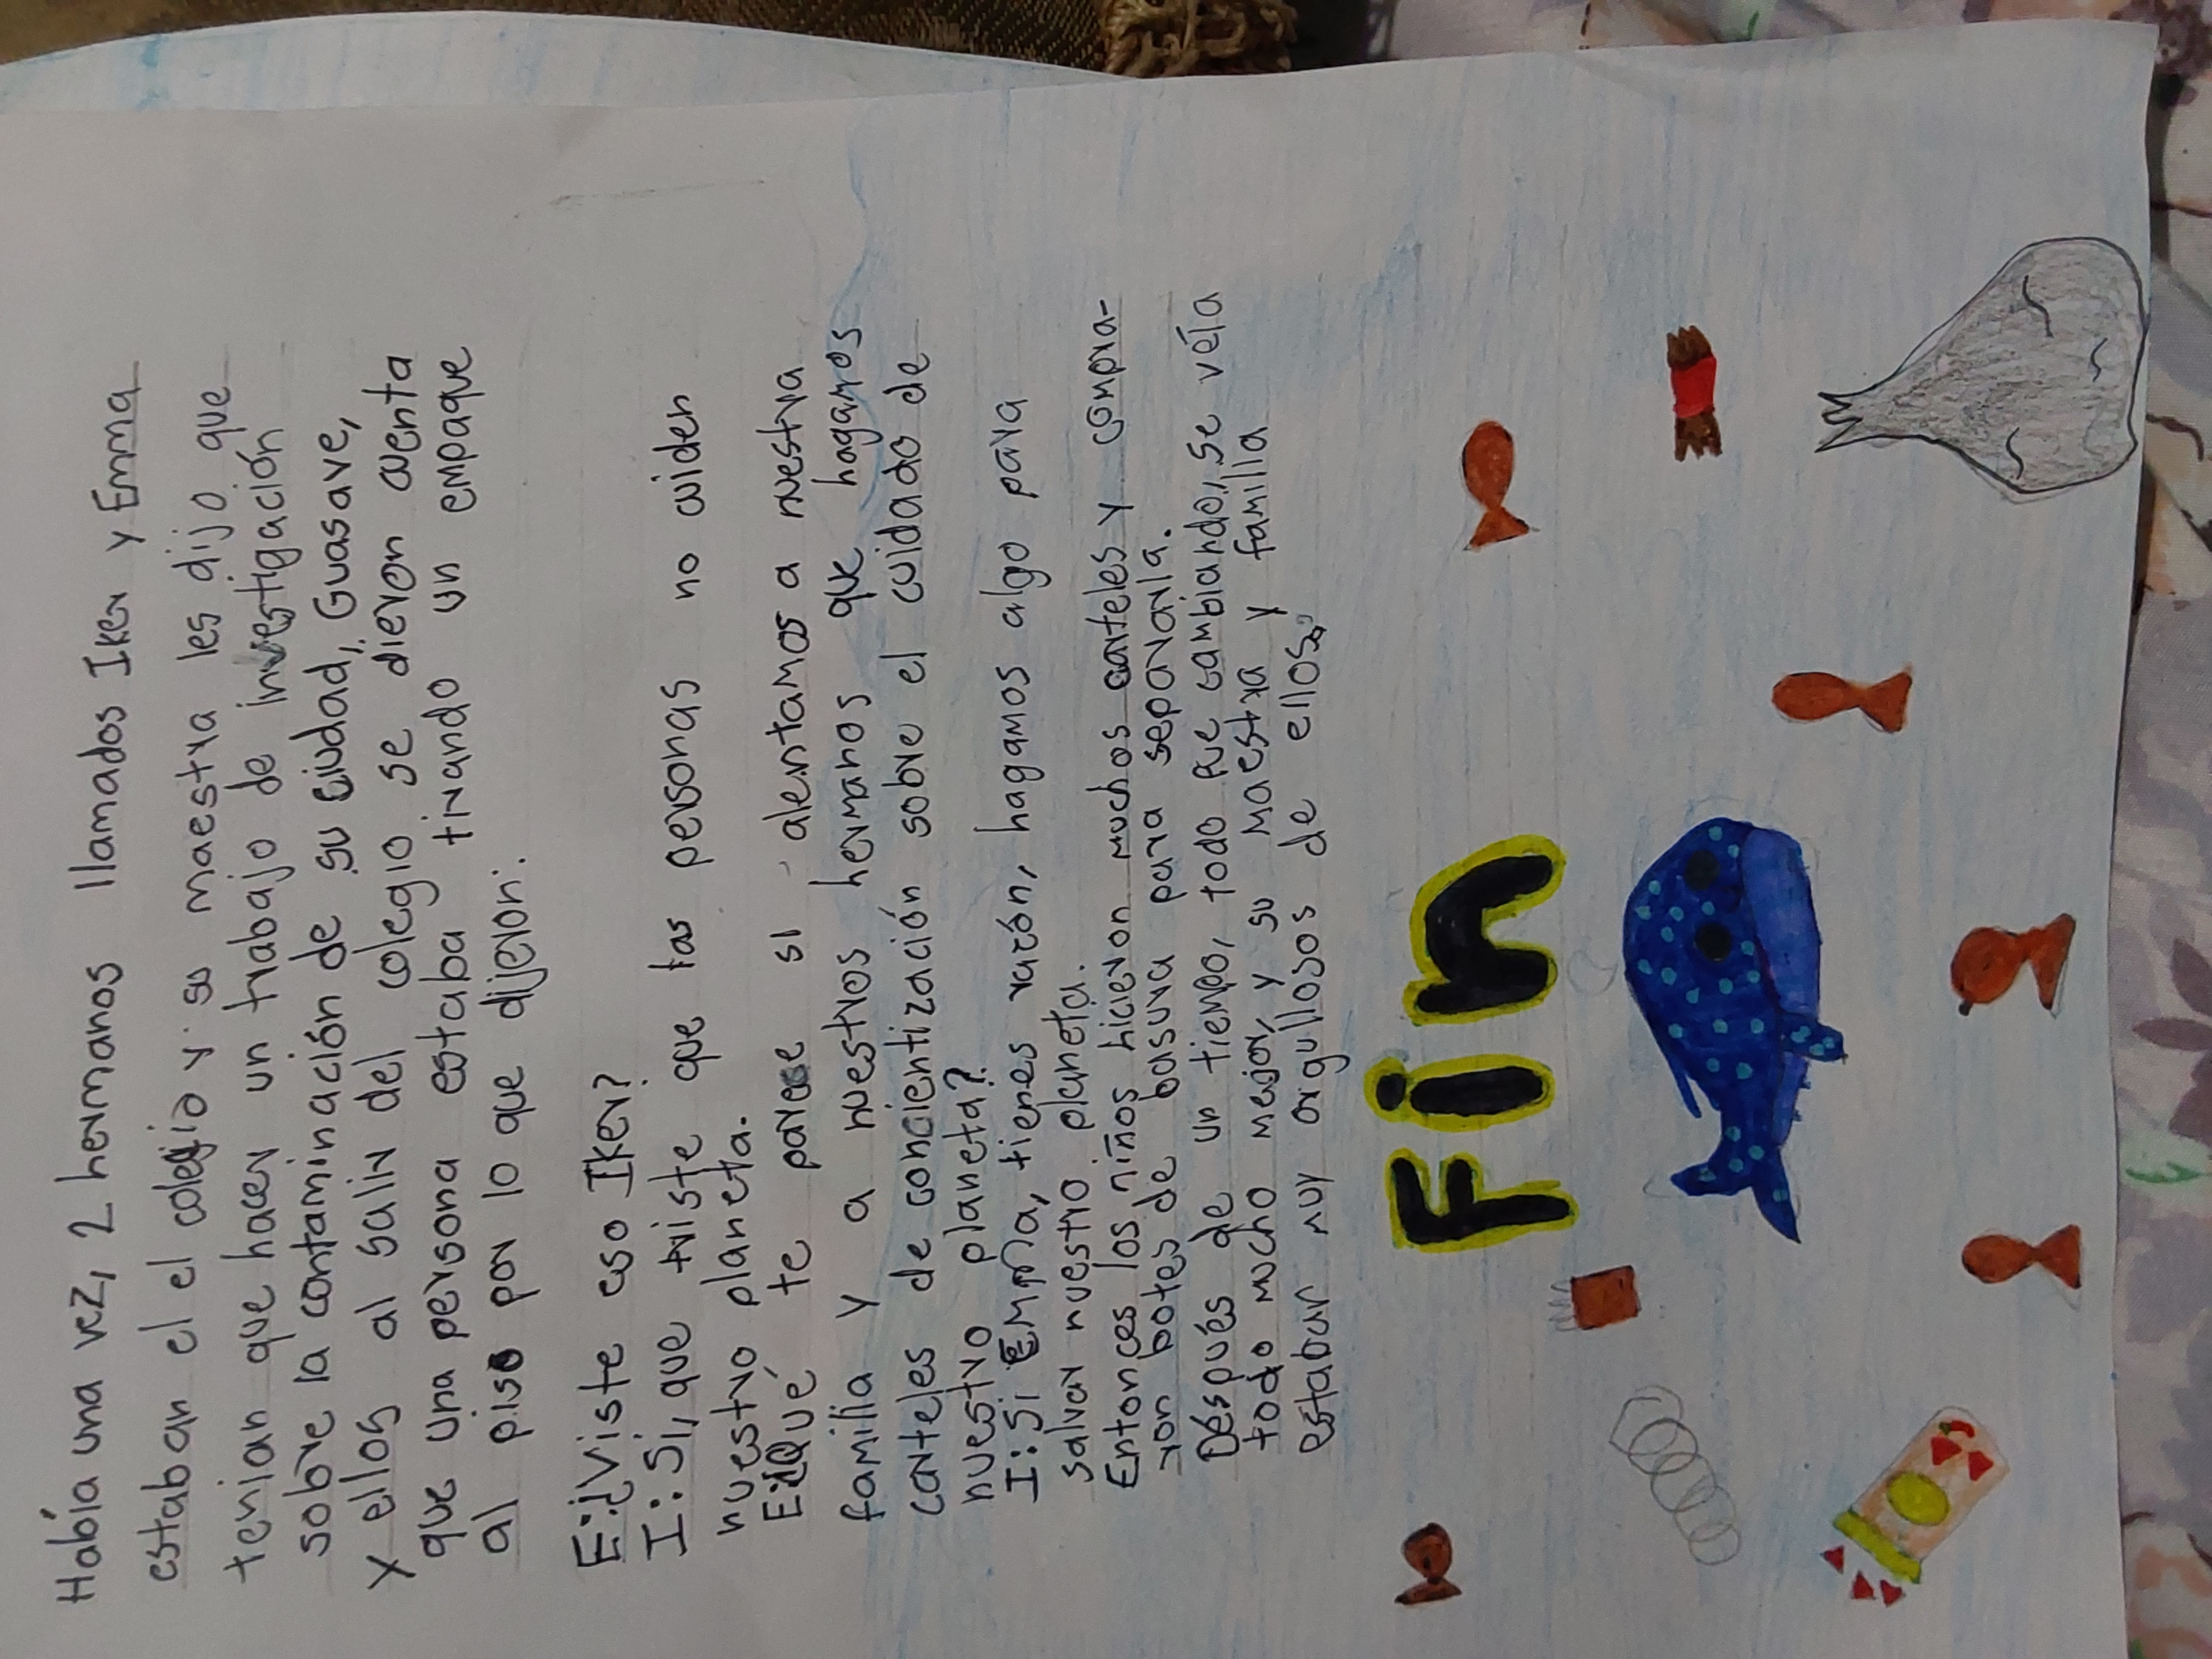 Había una vez, 2 hermanos llamados Iker y Emma
estaban el el colegio y su maestra les dijo que
tenian que hacer un trabajo de investigación
sobre la contaminación de su ciudad, Guasave,
y ellos al salir del colegio se dieron cuenta
que una persona estaba tirando un empaque
al piso por lo que dijeron:
E:¿Viste eso Iker?
I:Si, que triste que las personas no cuiden
nuestro planeta.
E:¿Qué te parece si alentamos a nuestra
familia y a nuestros hermanos que hagamos
carteles de concientización sobre el cuidado de
nuestro planeta?
I:Si Emma, tienes razón, hagamos algo para
salvar nuestro planeta.
Entonces los niños hicieron muchos carteles y compra-
ron botes de basura para separarla.
Después de un tiempo, todo fue cambiando, se véia
todo mucho mejor, y su maestra y familia
estaban muy orgullosos de ellos.
Fin